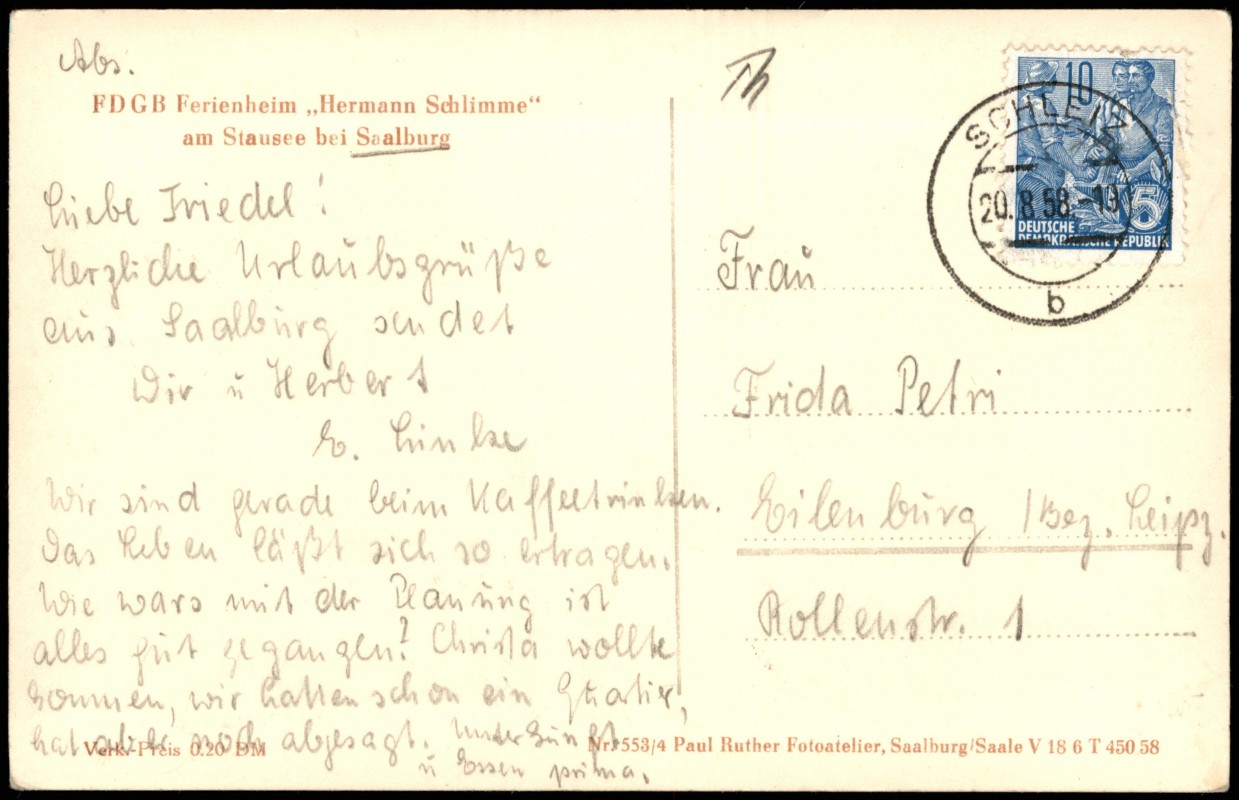 Abs.
FDGB Ferienheim „Hermann Schlimme“
am Stausee bei Saalburg
Liebe Friedel!
Herzliche Urlaubsgrüße
aus Saalburg sendet
Dir u Herbert
E. Linke
Wir sind gerade beim Kaffeetrinken.
Das Leben läßt sich so ertragen.
Wie wars mit der Planung ist
alles gut gegangen? Christa wollte
kommen, wir hatten schon ein Quartier,
hat aber noch abgesagt. Unterkunft
u Essen prima.
Verk.-Preis 0.20 DM
Nr. 553/4 Paul Ruther Fotoatelier, Saalburg/Saale V 18 6 T 450 58
10
5
DEUTSCHE
DEMOKRATISCHE REPUBLIK
SCHLEIZ
20. 8. 58.-19
b
Frau
Frida Petri
Eilenburg /Bez. Leipz.
Rollenstr. 1